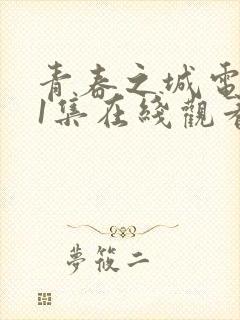 青春之城電
1集在綫觀看
夢筱二